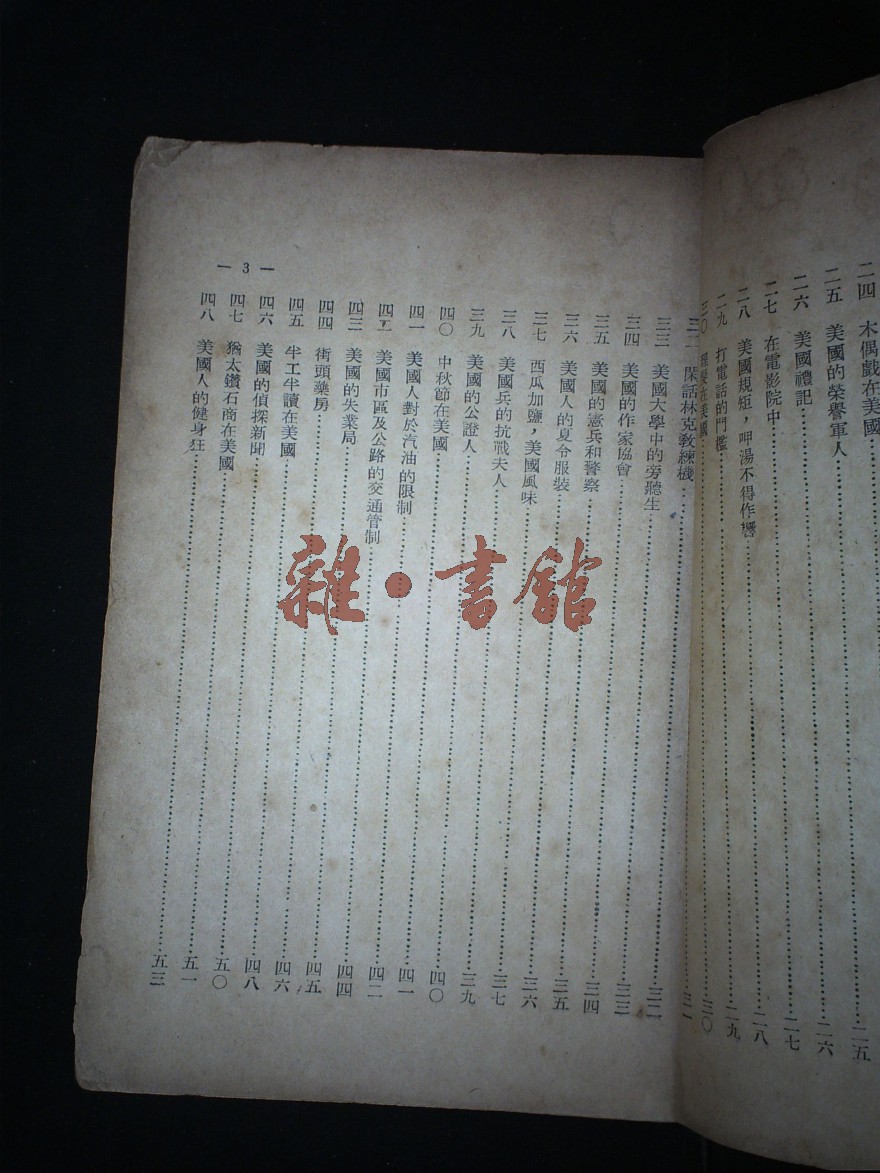 二四 木偶戲在美國……二五
二五 美國的榮譽軍人……二六
二六 美國禮記……二七
二七 在電影院中……二八
二八 美國規矩,呷湯不得作響……二九
二九 打電話的門檻……三〇
三〇 理髮在美國……三一
三二 閑話林克教練機……三二
三三 美國大學中的旁聽生……三三
三四 美國的作家協會……三四
三五 美國的憲兵和警察……三五
三六 美國人的夏令服裝……三六
三七 西瓜加鹽,美國風味……三七
三八 美國兵的抗戰夫人……三九
三九 美國的公證人……四〇
四〇 中秋節在美國……四一
四一 美國人對於汽油的限制……四二
四二 美國市區及公路的交通管制……四四
四三 美國的失業局……四五
四四 街頭藥房……四六
四五 半工半讀在美國……四八
四六 美國的偵探新聞……五〇
四七 猶太鑽石商在美國……五一
四八 美國人的健身狂……五三
— 3 —
雜·書館